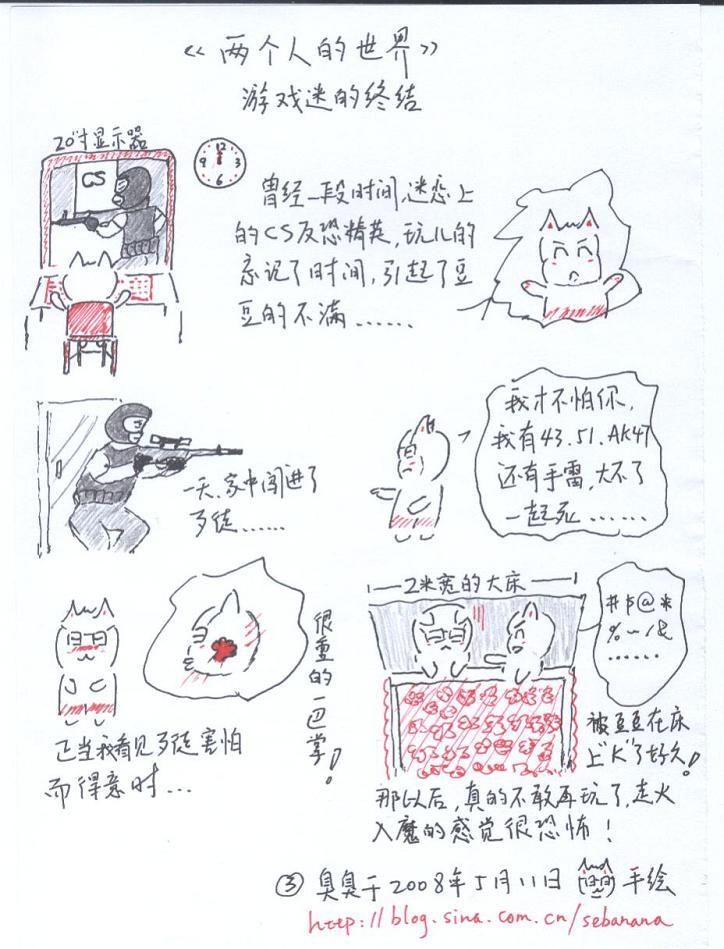 《两个人的世界》
游戏迷的终结
20寸显示器
CS
12
9 3
6
曾经一段时间,迷恋上
的CS反恐精英,玩儿的
忘记了时间,引起了豆
豆的不满……
一天,家中闯进了
歹徒……
我才不怕你,
我有43.51.AK47
还有手雷,大不了
一起死……
正当我看见歹徒害怕
而得意时...
很重的一巴掌!
2米宽的大床
#$@*
%~/&
……
被豆豆在床
上"K"了好久!
那以后,真的不敢再玩了,走火
入魔的感觉很恐怖!
③ 臭臭于2008年5月11日 手绘
http://blog.sina.com.cn/sebanana